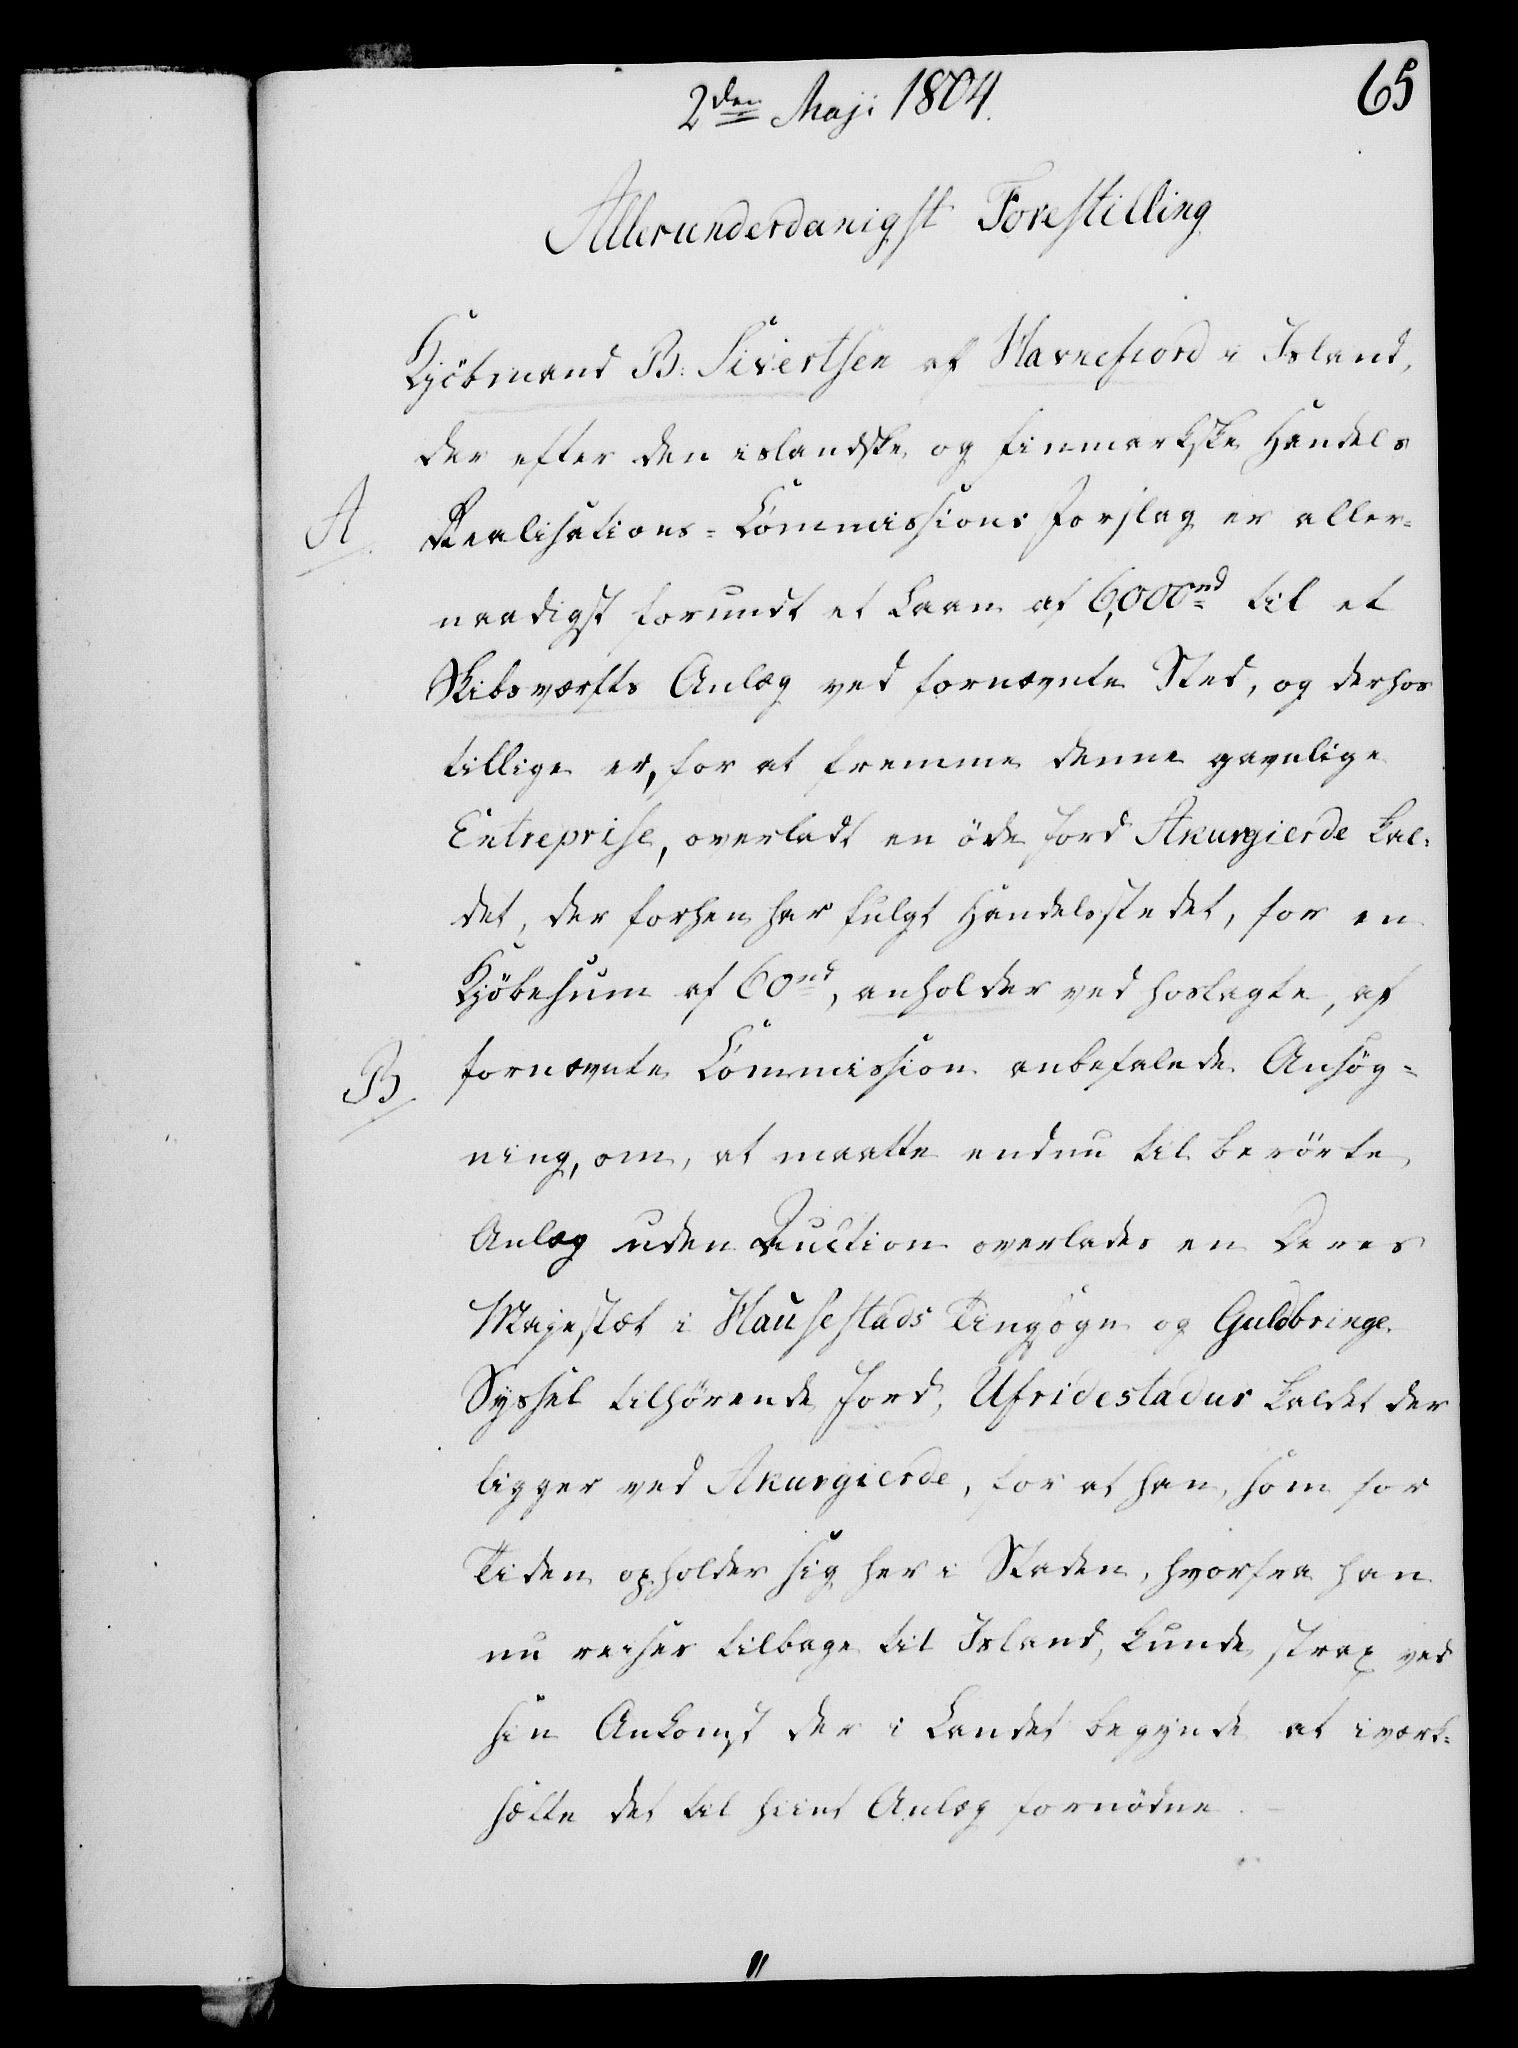 65
2den Maji 1804.
Allerunderdanigst Forestilling
Kjöbmand B: Sivertsen af Havnefiord i Island,
der efter den islandske og finmarkske Handels
A
Realisations-Commissions Forslag er aller-
naadigst forundt et Laan af 6,000 rd til et
Skibsværfts Anlæg ved fornævnte Sted, og derhos
tillige er, for at fremme denne gavnlige
Entreprise, overladt en öde Jord Akurgierde kal-
det, der forhen har fulgt Handelsstedet, for en
Kjöbesum af 60 rd, anholder ved hoslagte, af
B
fornævnte Commission anbefalede Ansög-
ning, om, at maatte endnu til berörte
Anlæg uden Auction overlades en Deres
Majestæt i Hausestads Tingsogn og Guldbringe
Syssel tilhörende Jord, Ufridestadur kaldet der
ligger ved Akurgierde, for at han, som for
Tiden opholder sig her i Staden, hvorfra han
nu reiser tilbage til Island, kunde strax ved
sin Ankomst der i Landet begynde at iværk-
sætte det til hiint Anlæg fornödne. -